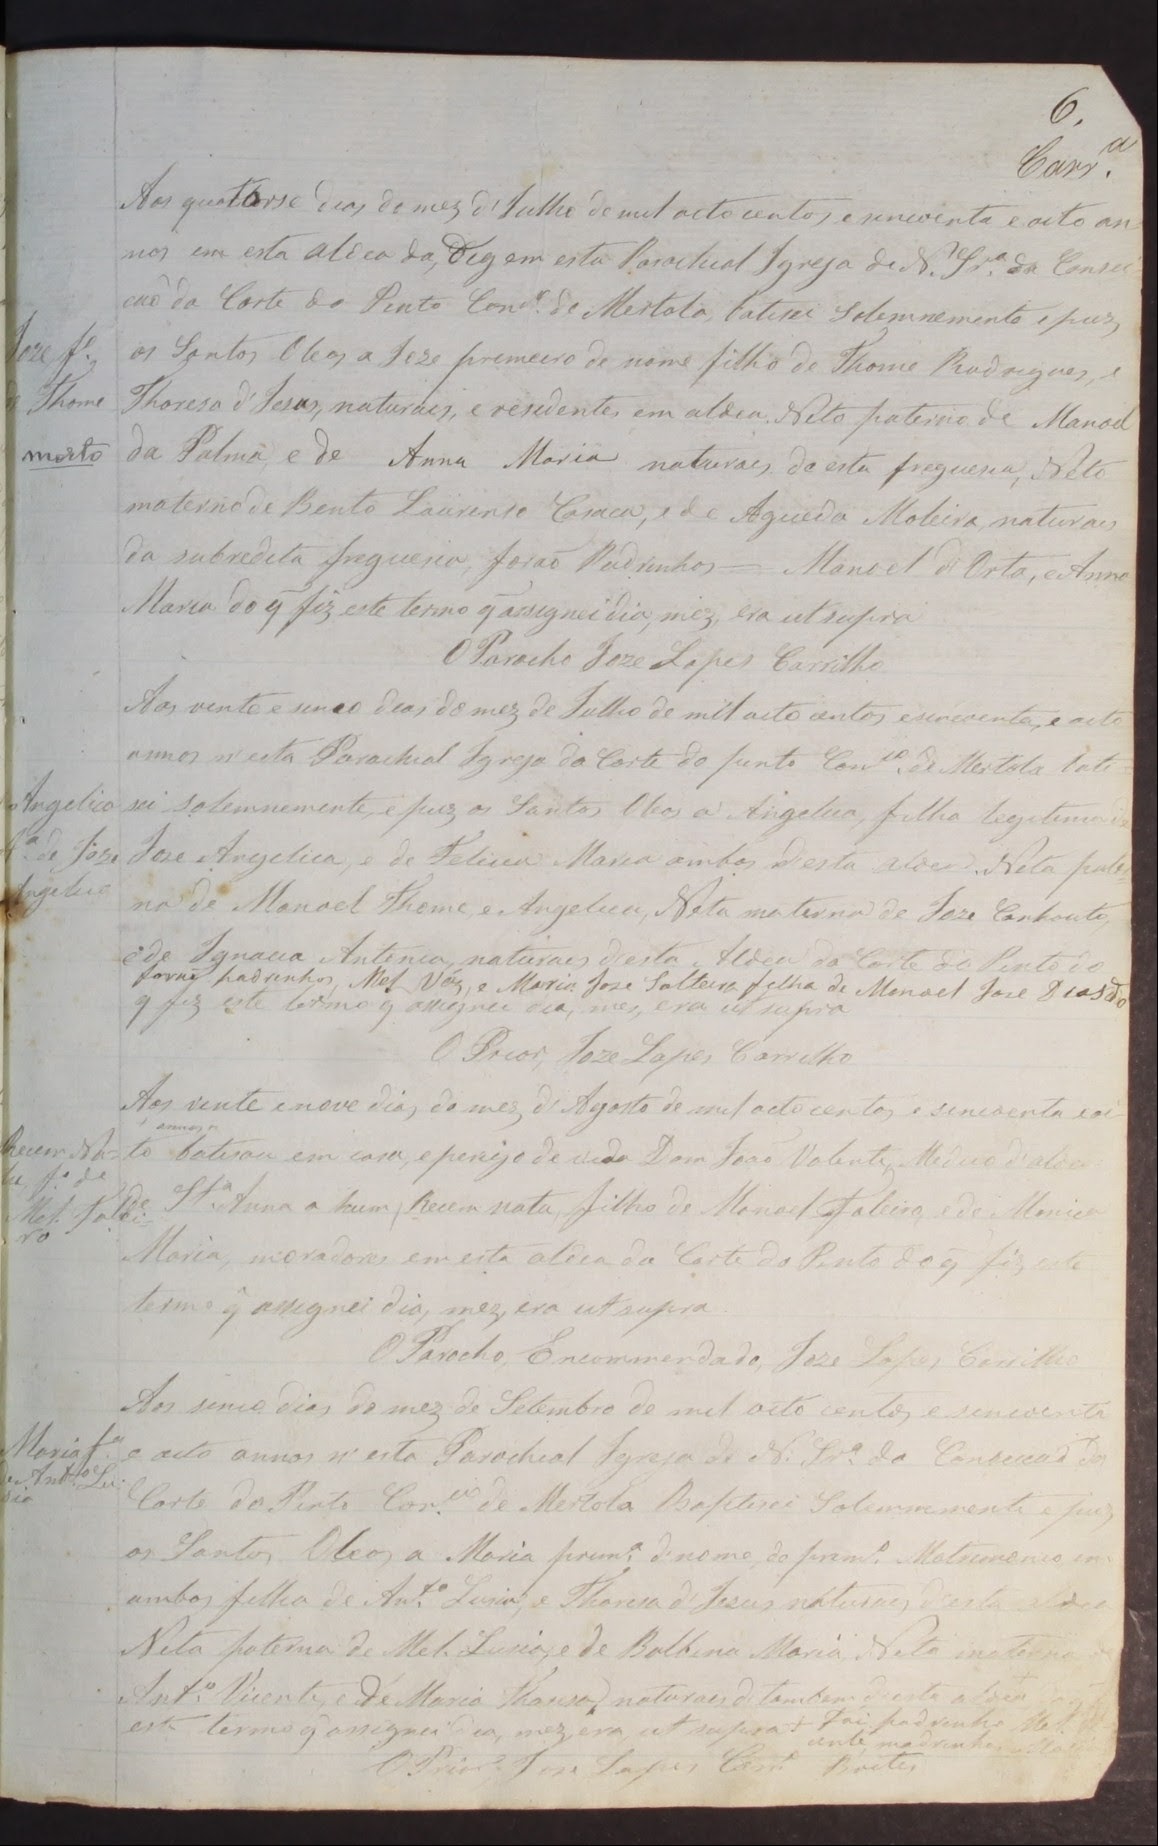 6.
Carr.ª
Aos quatorse dias do mez d'Julho de mil octo centos, e sincoenta e octo an
nos em esta aldea da, Digo em esta Parochial Igreja de N. Sr.ª da Consei
caõ da Corte do Pinto Con.º de Mertola, batisei Solemnemente e puz,
Joze f.º
os Santos Oleos a Joze premeiro de nome filho de Thome Rodrigues, e
de Thome
Thereza d'Jesus, naturais, e residentes em aldea. Neto paterno de Manoel
morto
da Palma, e de Anna Maria naturaes, de esta freguesia, Neto
materno de Bento Laurenso, e de Agueda Moleira, naturaes
da subredita freguesia, foraõ Padrinhos — Manoel d'Orta, e Anna
Maria do q̃ fiz este termo q̃ assignei dia, mez, era ut supra
O Parocho Joze Lopes Carrilho
Aos vente e sinco deas do mez de Julho de mil octo centos e sincoenta, e octo
annos n'esta Parochial Igreja da Corte do Pinto Con.co de Mertola bati
Angelica
sei Solemnemente, e puz os Santos Oleos a Angelica, filha legitima de
f.ª de Joze
Joze Angelica, e de Felicia Maria ambos d'esta aldea. Neta pater
Angelica
na de Manoel Thome, e Angelica, Neta materna de Joze
e de Ignacia Antonia, naturaes d'esta Aldea da Corte do Pinto do
foraõ padrinhos, Mel Váz, e Maria Joze Solteira filha de Manoel Joze Dias do
q̃ fiz este termo q̃ assignei dia, mes, era ut supra
O Prior, Joze Lopes Carrilho
Aos vente e nove dias do mez d'Agosto de mil octo centos e sincoenta e oi
annos
Recem Na-
to batisou em casa, e perigo de vida Dom Joaõ Valente, Medico d'aldea
to, f.º de
de St.ª Anna a hum, Recem nato, filho de Manoel Faleiro, e de Monica
Mel. Falei-
ro
Maria, moradores em esta aldea da Corte do Pinto do q̃ fiz este
termo q̃ assignei dia, mez, era ut supra
O Parocho, Encommendado, Joze Lopes Carrilho
Aos sinco dias do mez de Setembro de mil octo centos, e sincoenta
Maria f.ª
e octo annos n'esta Parochial Igreja de N. Sr.ª da Conseicaõ da
de Ant.º Lu-
sia
Corte do Pinto Con.co de Mertola Baptisei Solemnemente e puz,
os Santos Oleos a Maria prim.ª d'nome, do prim.º Matrimonio, em
ambos filha de Ant.º Lusia, e Thereza d'Jezus naturaes, d'esta aldea
Neta paterna de Mel. Lusia, e de Balbina Maria, Neta materna de
Ant.º Vicente, e De Maria Thareza, naturaes d'tambem d'esta aldea
este termo q̃ assignei dia, mez, era, ut supra + Foi padrinho Mel.
madrinha
O Prior, Joze Lopes